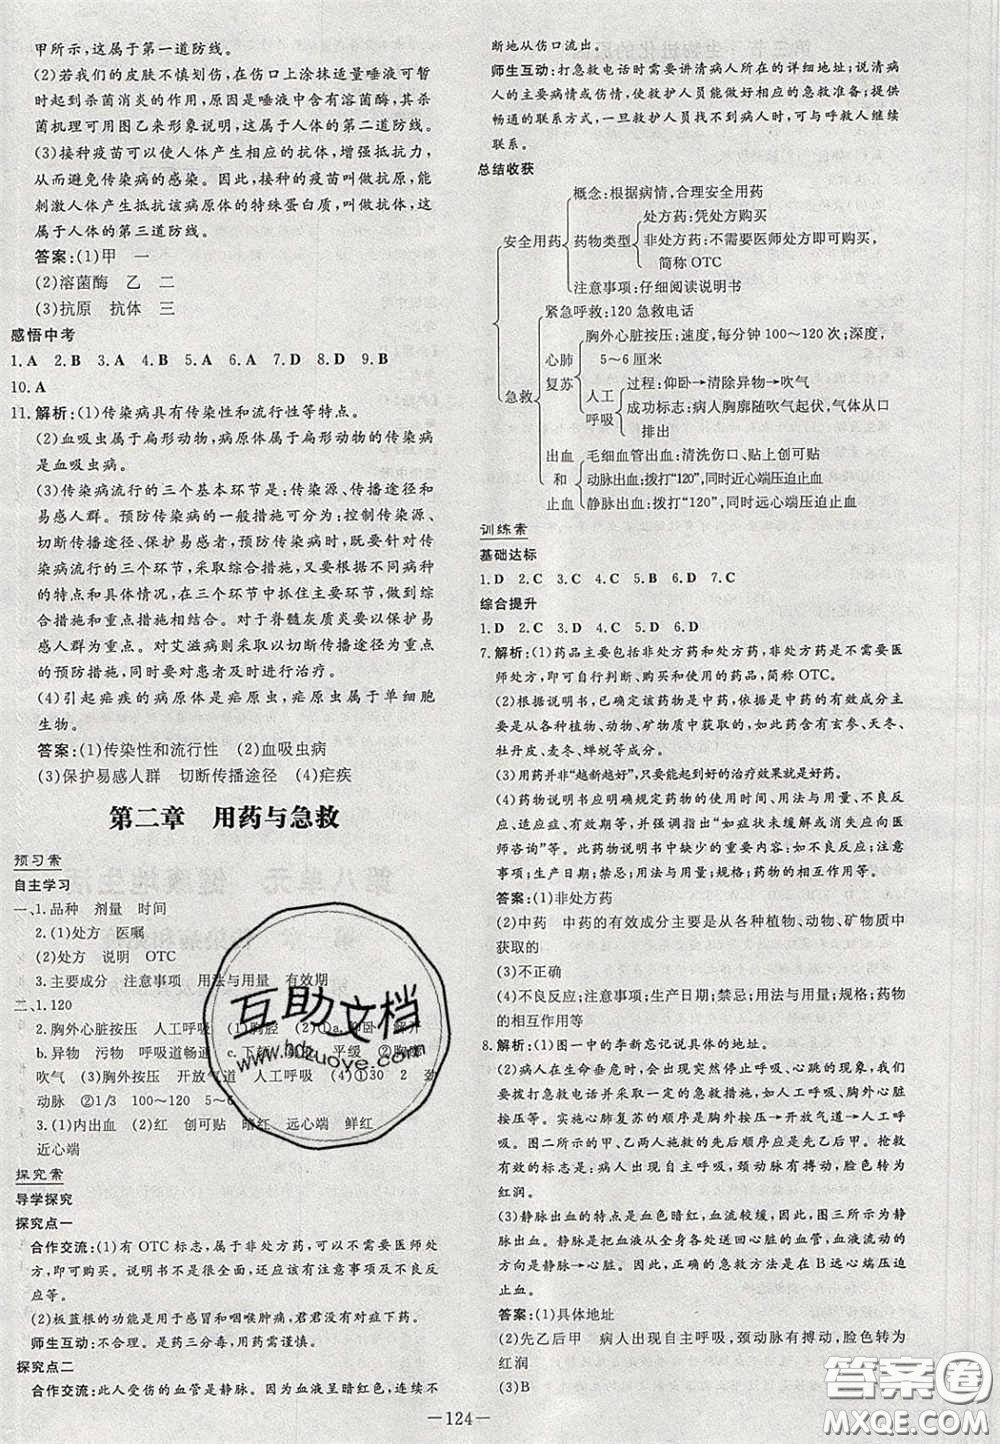 甲所示,这属于第一道防线。
(2)若我们的皮肤不慎划伤,在伤口上涂抹适量唾液可暂
时起到杀菌消炎的作用,原因是唾液中含有溶菌酶,其杀
菌机理可用图乙来形象说明,这属于人体的第二道防线。
(3)接种疫苗可以使人体产生相应的抗体,增强抵抗力,
从而避免传染病的感染。因此,接种的疫苗叫做抗原,能
刺激人体产生抵抗该病原体的特殊蛋白质,叫做抗体,这
属于人体的第三道防线。
答案:(1)甲 一
(2)溶菌酶 乙 二
(3)抗原 抗体 三
感悟中考
1.A 2.B 3.A 4.B 5.A 6.A 7.D 8.D 9.B
10.A
11.解析:(1)传染病具有传染性和流行性等特点。
(2)血吸虫属于扁形动物,病原体属于扁形动物的传染病
是血吸虫病。
(3)传染病流行的三个基本环节是:传染源、传播途径和
易感人群。预防传染病的一般措施可分为:控制传染源、
切断传播途径、保护易感者,预防传染病时,既要针对传
染病流行的三个环节,采取综合措施,又要根据不同病种
的特点和具体情况,在三个环节中抓住主要环节,做到综
合措施和重点措施相结合。对于脊髓灰质炎要以保护易
感人群为重点。对于艾滋病则采取以切断传播途径为主
的预防措施,同时要对患者进行治疗。
(4)引起疟疾的病原体是疟原虫,疟原虫属于单细胞
生物。
答案:(1)传染性和流行性 (2)血吸虫病
(3)保护易感人群 切断传播途径 (4)疟疾
第二章 用药与急救
预习案
自主学习
一、1.品种 剂量 时间
2.(1)处方 医嘱
(2)处方 说明 OTC
3.主要成分 注意事项 用法与用量 有效期
二、1.120
2.胸外心脏按压 人工呼吸 (1)胸腔 (2)①a.仰卧 解开
b.异物 污物 呼吸道畅通 c.下颌 平缓 ②胸廓
吹气 (3)胸外按压 开放气道 人工呼吸 (4)①30 2 颈
动脉 ②1/3 100~120 5~6
3.(1)内出血 (2)红 创可贴 暗红 远心端 鲜红
近心端
探究案
导学探究
探究点一
合作交流:(1)有OTC标志,属于非处方药,不需要医师处
方,即可购买。说明书不是很全面,还应该有注意事项及不良反
应等。
(2)板蓝根的功能是主治感冒和咽喉肿痛,君君没有对症下药。
师生互动:不合理。是药三分毒,用药需谨慎。
探究点二
合作交流:此人受伤的血管是静脉。因为血液呈暗红色,连续不
断地从伤口流出。
师生互动:打急救电话时需要讲清病人所在的详细地址;说清病
人的主要病情或伤情,使救护人员能做好相应的急救准备;提供
畅通的联系方式,一旦救护人员找不到病人时,可与呼救人继续
联系。
总结收获
概念:根据病情,合理安全用药
处方药:凭处方购买
安全用药 药物类型 非处方药:不需要医师处方即可购买,
简称OTC
注意事项:仔细阅读说明书
紧急呼救:120急救电话
胸外心脏按压:速度,每分钟100~120次;深度,
心肺 5~6厘米
复苏 人工 过程:仰卧→清除异物→吹气
急救 呼吸 成功标志:病人胸廓随吹气起伏,气体从口
排出
出血 毛细血管出血:清洗伤口、贴上创可贴
和 动脉出血:拨打“120”,同时近心端压迫止血
止血 静脉出血:拨打“120”,同时远心端压迫止血
训练案
基础达标
1.D 2.C 3.C 4.C 5.B 6.D 7.C
综合提升
1.D 2.C 3.B 4.D 5.D 6.D
7.解析:(1)药品主要包括非处方药和处方药,非处方药是不需要医
师处方,即可自行判断、购买和使用的药品,简称OTC。
(2)根据说明书,已确定该药物是中药,依据是中药的有效成分主
要是从各种植物、动物、矿物质中获取的,如此药含有玄参、天冬、
牡丹皮、麦冬、蝉蜕等成分。
(3)用药并非“越新越好”,只要能起到好的治疗效果就是好药。
(4)药物说明书应明确规定药物的使用时间、用法与用量、不良反
应、适应症、有效期等,并强调指出“如症状未缓解或消失应向医
师咨询”等。此药物说明书中缺少的重要内容有:禁忌、不良反
应、注意事项、规格、生产日期、药物的相互作用等。
答案:(1)非处方药
(2)中药 中药的有效成分主要是从各种植物、动物、矿物质中
获取的
(3)不正确
(4)不良反应;注意事项;生产日期;禁忌;用法与用量;规格;药物
的相互作用等
8.解析:(1)图一中的李新忘记说具体的地址。
(2)病人在生命垂危时,可能会出现停止呼吸、心跳的现象,我们
要拨打急救电话并采取一定的急救措施,如人工呼吸、胸外心脏
按压等。实施心肺复苏的顺序是胸外按压→开放气道→人工呼
吸。图二所示的甲、乙两人施救的先后顺序应是先乙后甲。抢救
有效的标志是:病人出现自主呼吸,颈动脉有搏动,脸色转为
红润。
(3)静脉出血的特点是血色暗红,血流较缓,因此,图三所示为静
脉出血。静脉是把血液从全身各处送回心脏的血管,血液流动的
方向是:静脉→心脏。因此,正确的急救方法是在B远心端压迫
止血。
答案:(1)具体地址
(2)先乙后甲 病人出现自主呼吸,颈动脉有搏动,脸色转为
红润
(3)B
—124—
互助文档
www.hdzuoye.com
答案圈
MXQE.COM